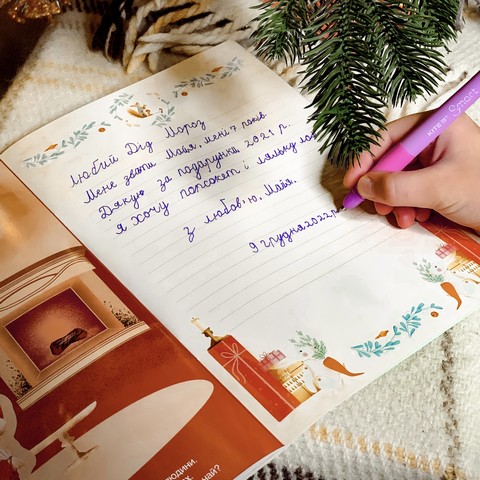 Любий Дід Мороз
Мене звати Майя, мені 7 років
Дякую за подарунки 2021 р.
я хочу попсокет і ляльку
З любов'ю, Майя.
9 грудня 2022р
KITE Smart
людини.
чай?